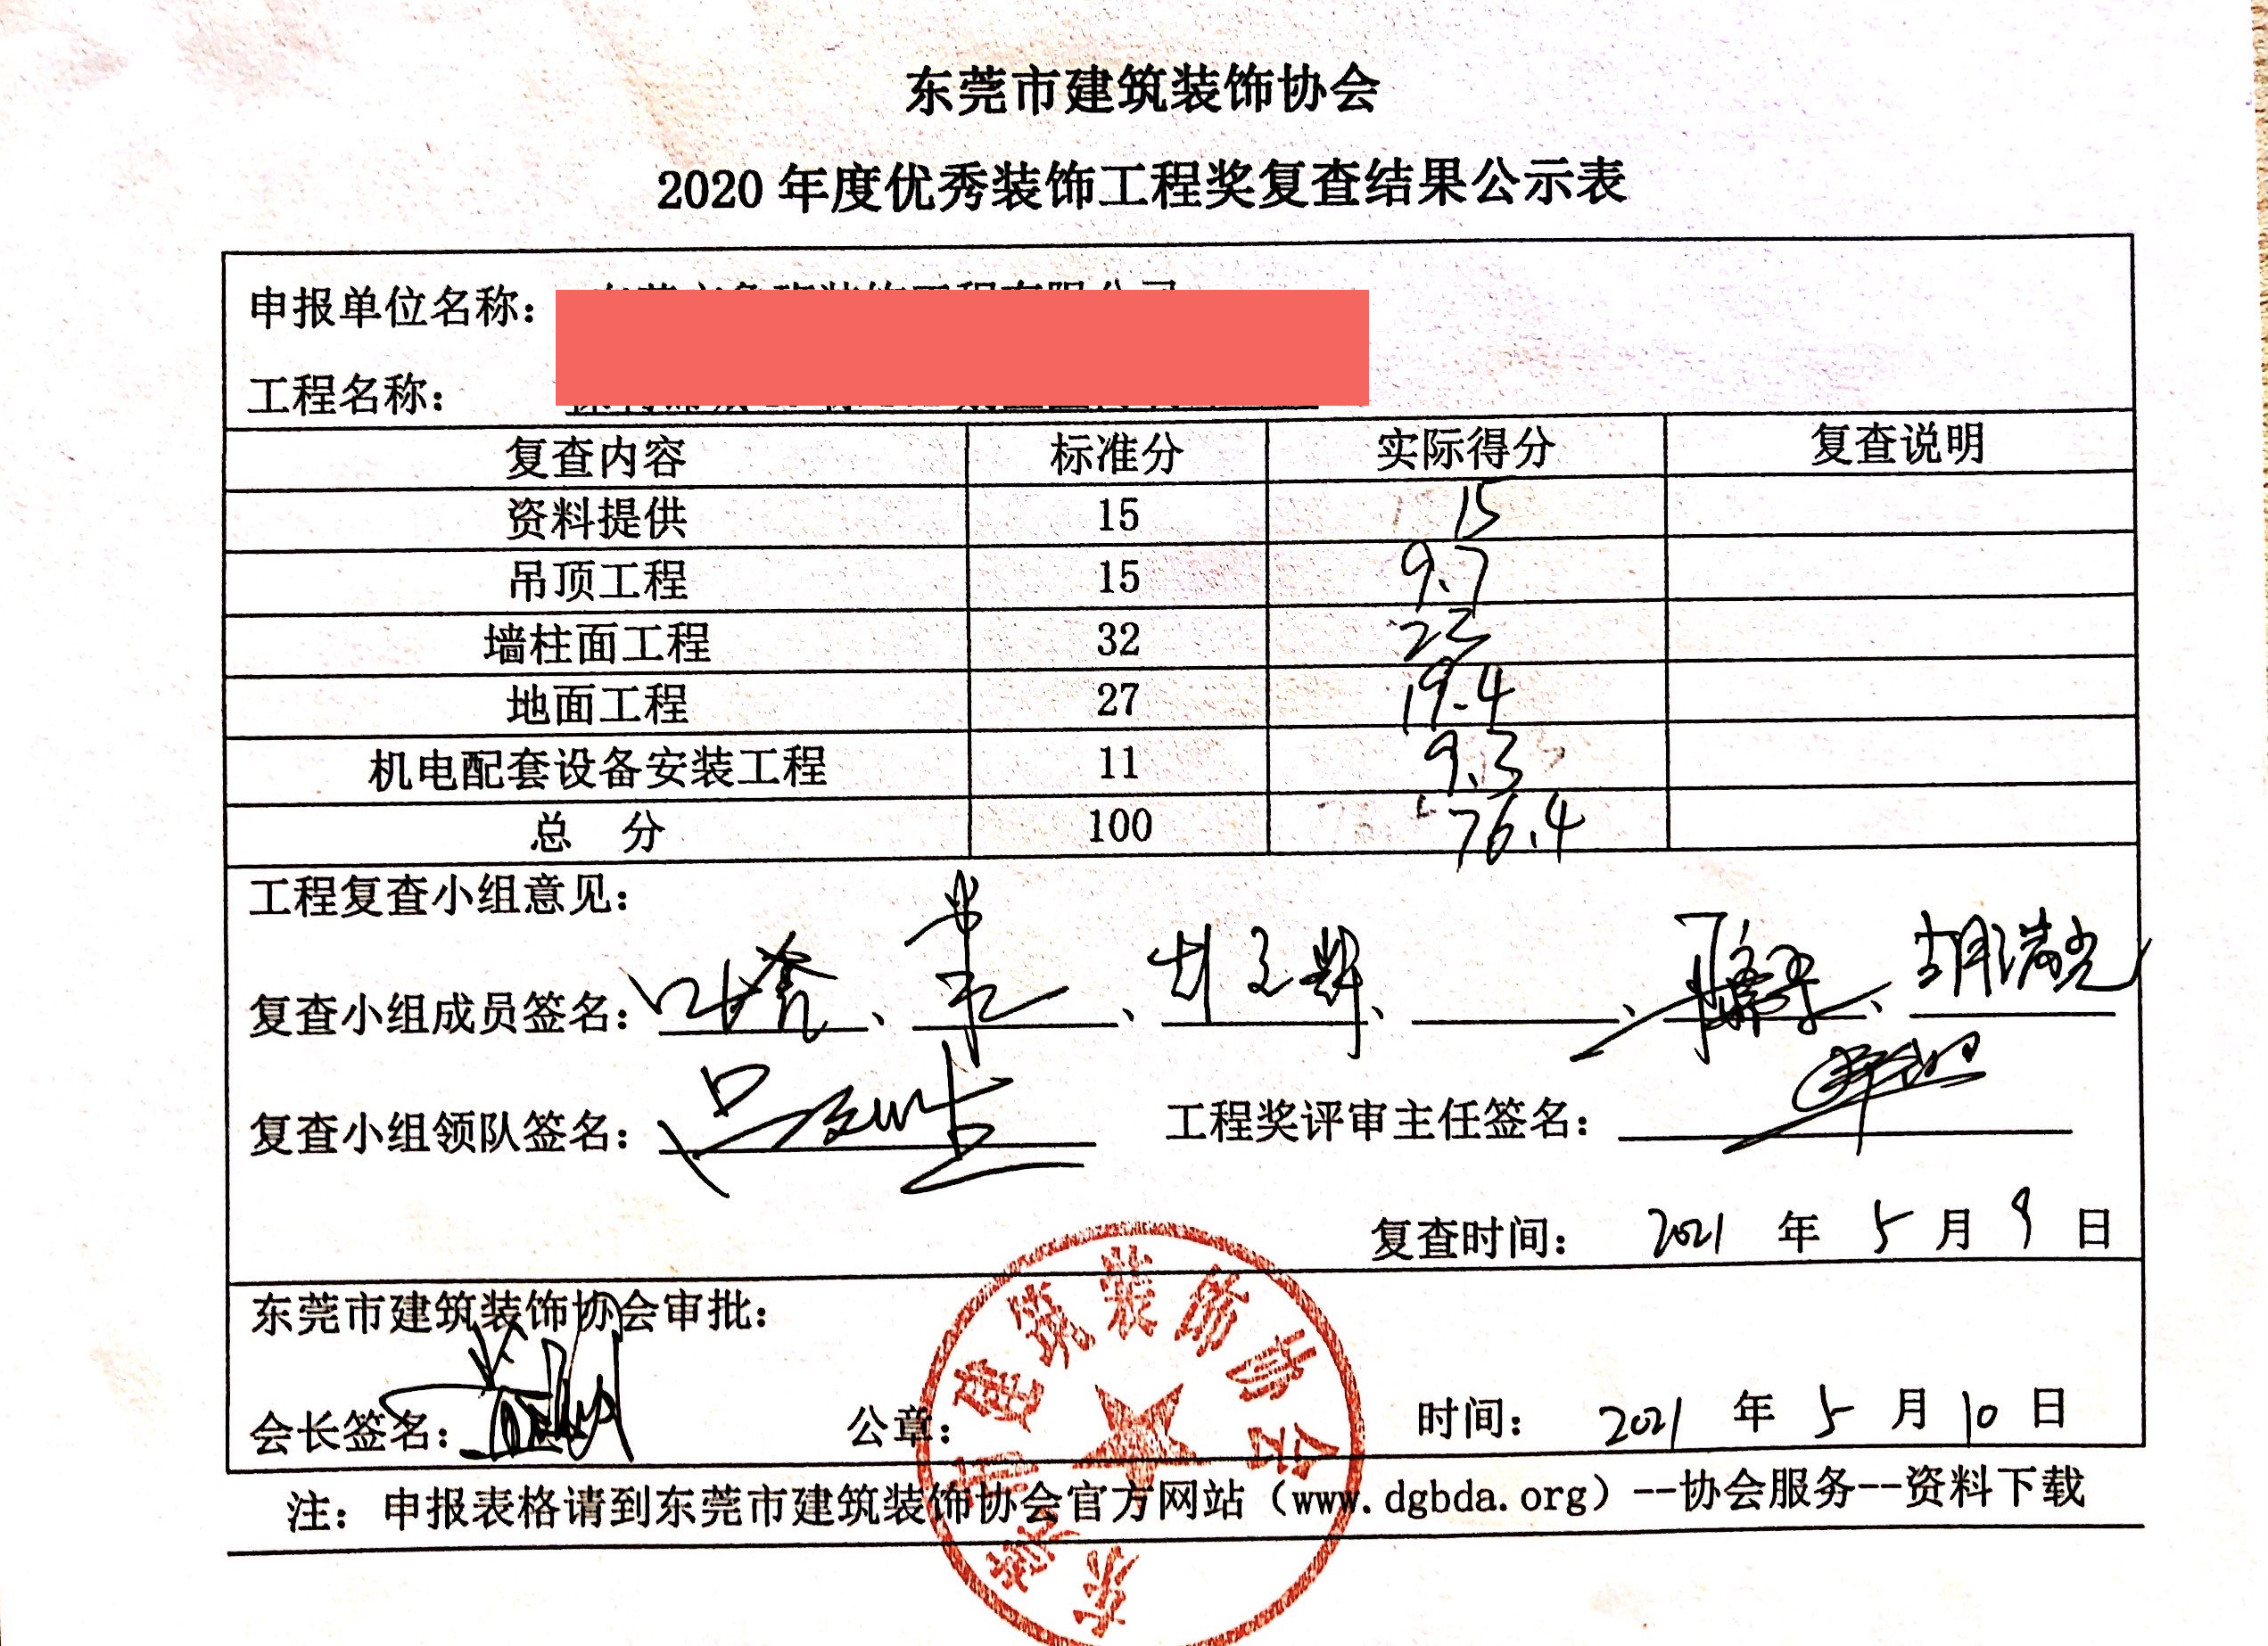 东莞市建筑装饰协会
2020 年度优秀装饰工程奖复查结果公示表
申报单位名称：
工程名称：
复查内容 标准分 实际得分 复查说明
资料提供 15 15
吊顶工程 15 9.7
墙柱面工程 32 23
地面工程 27 19.4
机电配套设备安装工程 11 9.3
总 分 100 76.4
工程复查小组意见：
复查小组成员签名： 、 、 、 、 、 胡满光
复查小组领队签名： 工程奖评审主任签名：
复查时间： 2021 年 5 月 9 日
东莞市建筑装饰协会审批：
会长签名： 公章： 时间： 2021 年 5 月 10 日
东莞市建筑装饰协会
注：申报表格请到东莞市建筑装饰协会官方网站（www.dgbda.org）--协会服务--资料下载